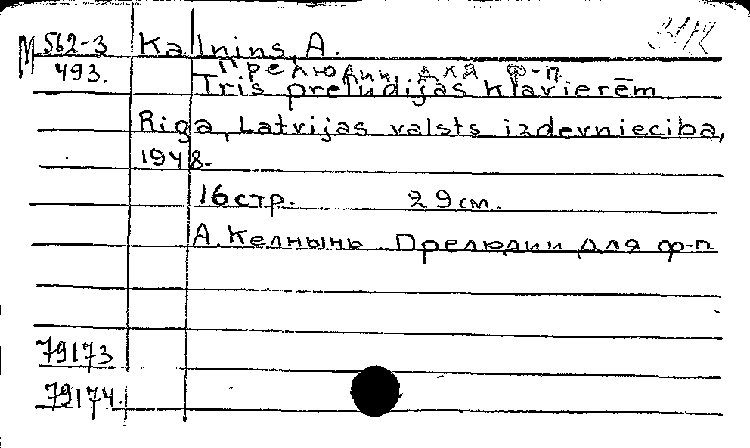 М 562-3 Kalnins, A.
493. Прелюдии для ф-п.
Tris prelūdijas klavierēm
Riga, Latvijas valsts izdevnieciba,
1948.
16 стр. 29 см.
А. Келнынь. Прелюдии для ф-п
79173
79174.